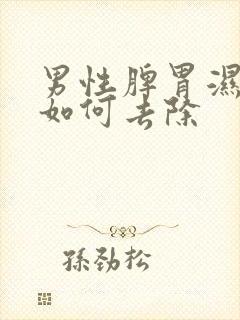 男性脾胃濕
如何去除
孫劲松